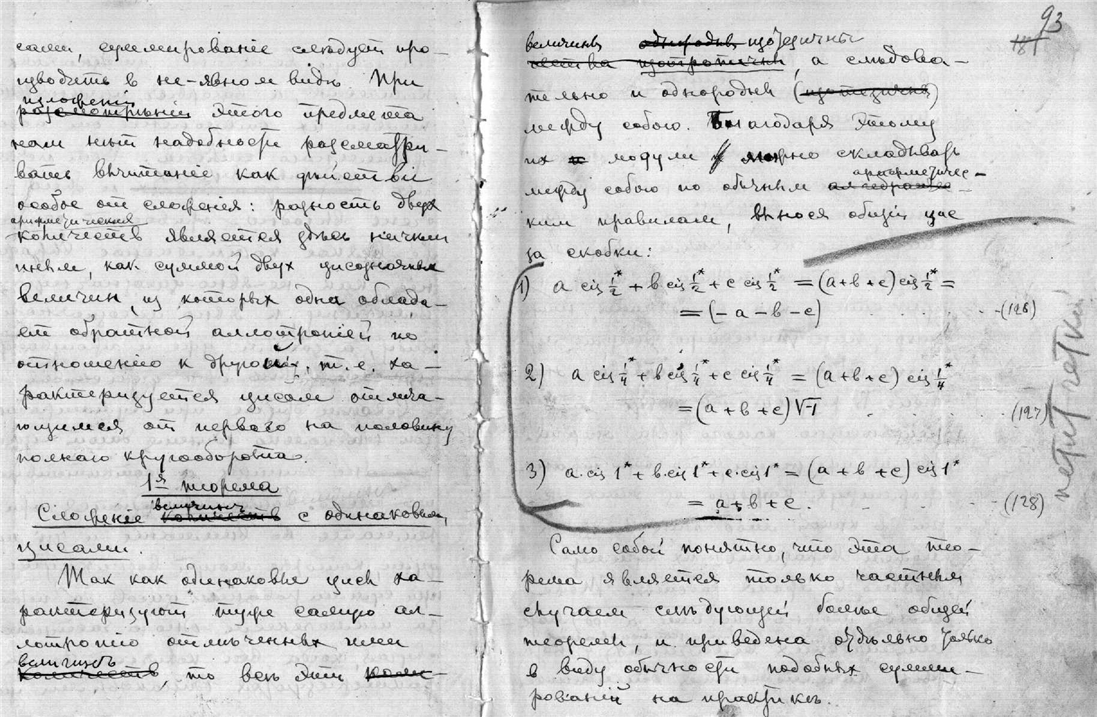 сами, суммированіе слѣдуетъ про-
изводить в не-явном видѣ. При
изложеніи
разсмотрѣніи этого предмета
нам нѣт надобности разсматри-
вать вычитаніе как дѣйствіе
особое от сложенія: разность двух
арифметических
количеств является здѣсь ничѣм
иным, как суммой двух цисоидных
величин, из которых одна облада-
ет обратной аллотропіей по
отношенію к другой, т. е. ха-
рактеризуется цисом отлича-
ющимся от перваго на половину
полнаго кругооборота.
1ая теорема
величинъ
Сложеніе количеств с одинаковыми
цисами.
Так как одинаковые цисы ха-
рактеризуют туже самую ал-
лотропію отмѣченных ими
величинъ
количеств, то всѣ эти коли-
93
181
величины однородны изотропичны
чества изотропичны, а слѣдова-
тельно и однородны (изотропичны)
между собою. Благодаря этому
их модули можно складывать
арифметичес-
между собою по обычным алгебраичес-
ким правилам, вынося общій цис
за скобки:
1) a cis 1/2* + b cis 1/2* + c cis 1/2* = (a+b+c) cis 1/2* =
= (- a - b - c) . . . -(126)
2) a cis 1/4* + b cis 1/4* + c cis 1/4* = (a+b+c) cis 1/4*
= (a + b + c) √-1 . . . (127)
3) a. cis 1* + b. cis 1* + c. cis 1* = (a + b + c) cis 1*
= a + b + c. . . - (128)
петит четки
Само собой понятно, что эта тео-
рема является только частным
случаем слѣдующей болѣе общей
теоремы, и приведена отдѣльно только
в виду обычности подобных сумми-
рованій на практикѣ.